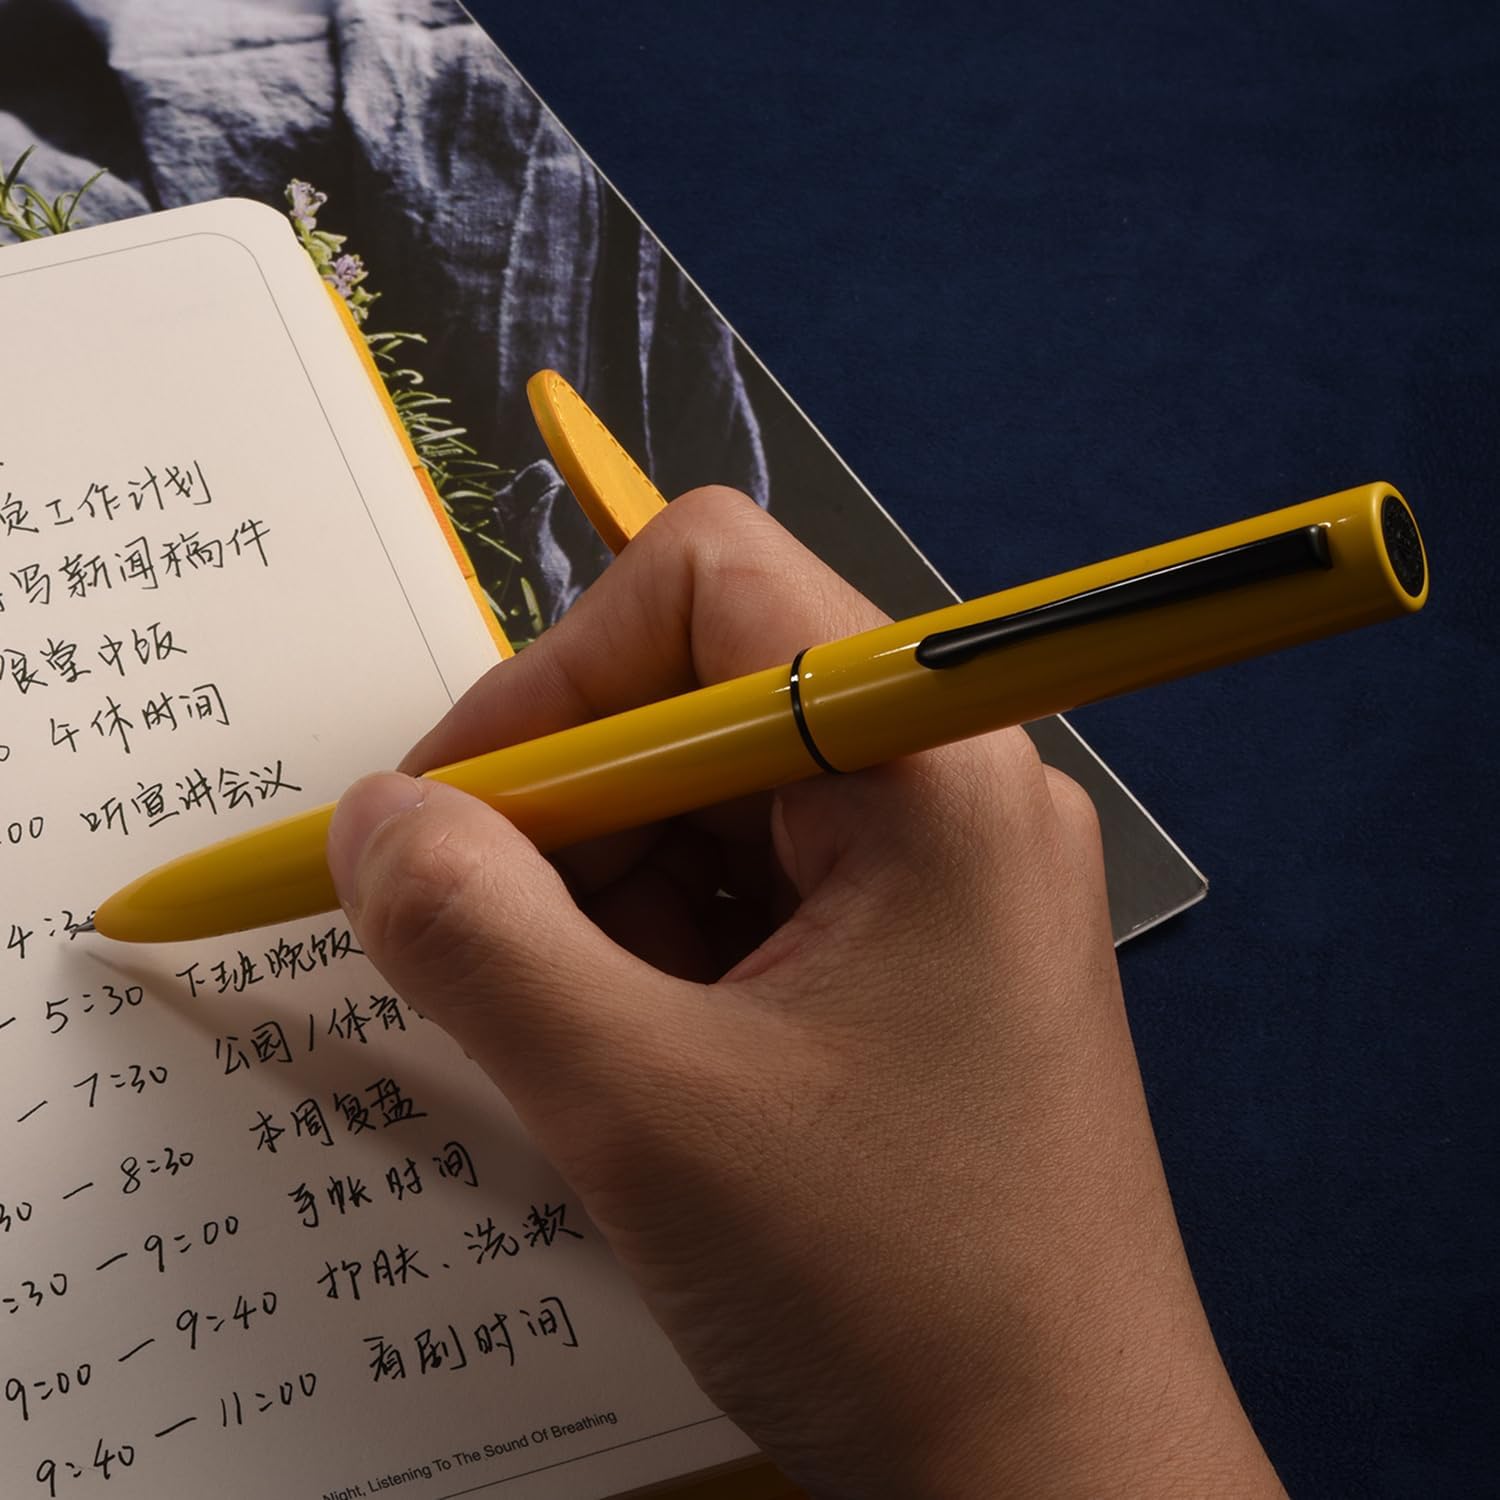 工作计划
写新闻稿件
食堂中饭
午休时间
:00 听宣讲会议
4:3
– 5:30 下班晚饭
– 7:30 公园/体育
30 – 8:30 本周复盘
:30 – 9:00 手帐时间
9:00 – 9:40 护肤、洗漱
9:40 – 11:00 看剧时间
Night, Listening To The Sound Of Breathing